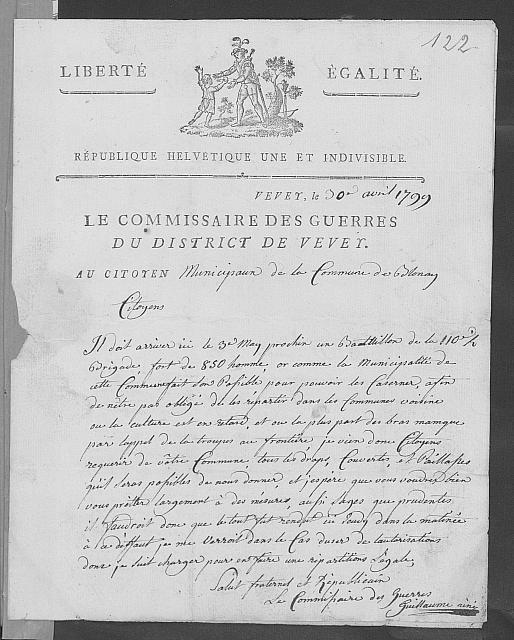 122
LIBERTÉ ÉGALITÉ.
RÉPUBLIQUE HELVÉTIQUE UNE ET INDIVISIBLE.
VEVEY, le 30e avril 1799
LE COMMISSAIRE DES GUERRES
DU DISTRICT DE VEVEY.
AU CITOYEN Municipaux de la Commune de Blonay
Citoyens
Il doit arriver ici le 3e May prochin un Battaillon de la 110e 1/2
Brigade, fort de 850 homme, or comme la Municipalité de
cette Commune fait son Possible pour pouvoir les Caserner, afin
de nêtre pas obligé de les répartir dans les Communes voisine
ou la Culture est en retard, et ou la plus part des bras manque
par lappel de la troupes au frontière, je vien donc Citoyens
requerir de vôtre Commune tous les draps, Couvertes, et Paillasses
qu'il seras possibles de nous donner, et j'espere que vous voudrez bien
vous prêtter largement à des mesures, aussi sages que prudentes
il faudroit donc que le tout fut rendut ici Jeudy dans la matinée
à ce déffaut je me verroit dans le Cas duser de lautorisations
donc je suit charger pour en faire une répartitions Légale,
Salut fraternel et Républicain
Le Commissaire des Guerres
Guillaume ainé